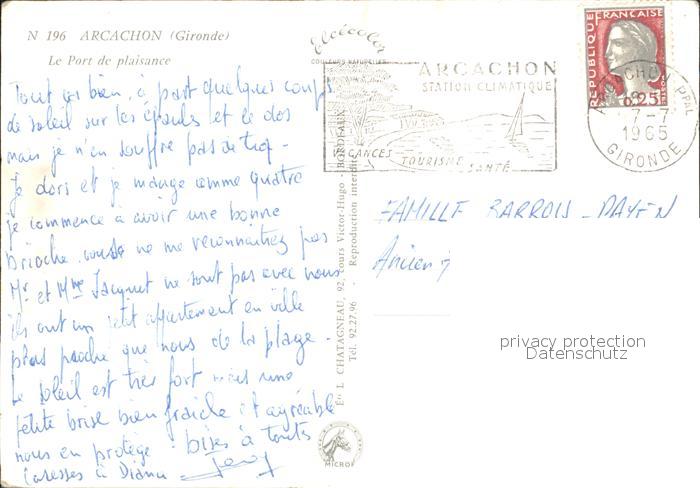 N 196 ARCACHON (Gironde)
Le Port de plaisance
Tout va bien, à part quelques coups
de soleil sur les épaules et le dos
mais je n'en souffre pas de trop -
Je dors et je mange comme quatre
je commence à avoir une bonne
brioche. vous ne me reconnaîtrez pas
Mr et Mme Jacquet ne sont pas avec nous
ils ont un petit appartement en ville
plus proche que nous de la plage -
Le soleil est très fort mais une
petite brise bien fraîche et agréable
nous en protège. bises à toutes
Caresses à Diana
Elcécolor
COULEURS NATURELLES
ARCACHON
STATION CLIMATIQUE
VACANCES TOURISME SANTÉ
REPUBLIQUE FRANÇAISE
0,25
POSTES
ARCACHON PPAL
7-7
1965
GIRONDE
L. CHATAGNEAU, 92, cours Victor-Hugo - BORDEAUX
Tél. 92.27.96 - Reproduction interdite
FAMILLE BARROIS - DAYEN
MICROF
privacy protection
Datenschutz